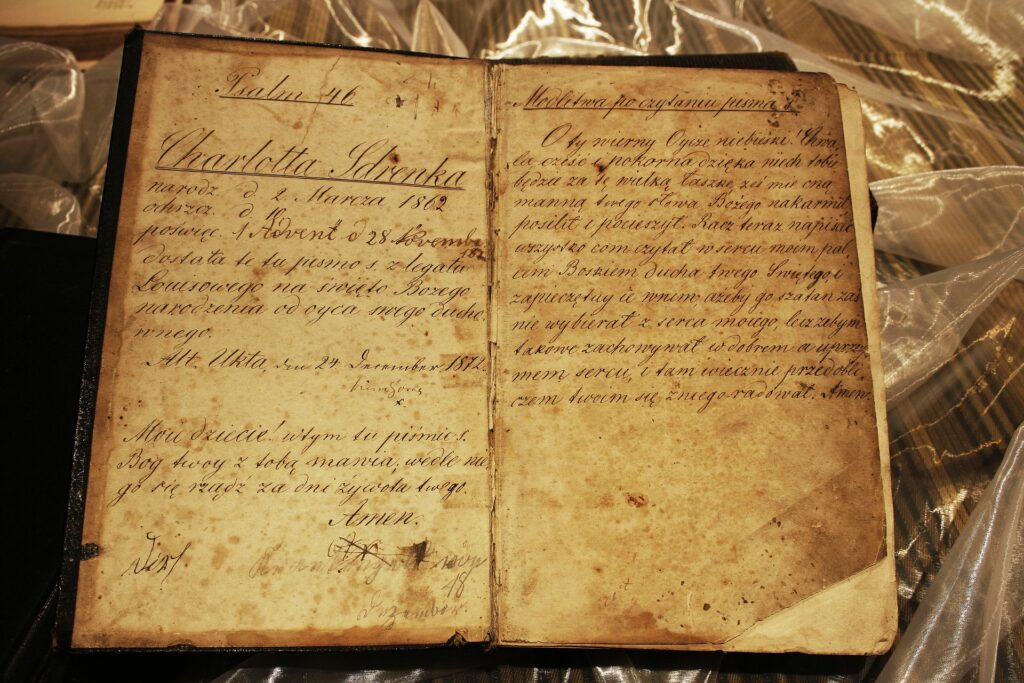 Psalm 46
Charlotta Sdrenka
narodz. d 2. Marcza 1862
ochrzcz. d 16
poswięc. 1 Advent d 28 Novembr
dostała te tu pismo s. z legatu
Louisowego na swięto Bozego
narodzenia od oyca swego ducho
wnego.
Alt. Ukta, den 24 December 1872.
Moie dziecie! wtym tu piśmie s.
Bog twoy z tobą mawia, wedle nie
go się rządź za dni żywota twego.
Amen.
18
Dezember.
Modlitwa po czytaniu pisma s.
O ty wierny Oycze niebieski! Chwa,
la, cześć i pokorna dzięka niech tobie
będzie za tę wielką łaskę, żeś mie oną
manną twego słowa Bożego nakarmił
posilił i pocieszył. Racz teraz napisać
wszystko com czytał w sercu moiem pal,
cem Boskiem ducha twego Swiętego, i
zapieczętuy ie wnim, ażeby go szatan zaś
nie wybierał z serca moiego, lecz żebym
takowe zachowywał w dobrem a uprzy
mem sercu, i tam wiecznie przed obli,
czem twoim się zniego radował. Amen.